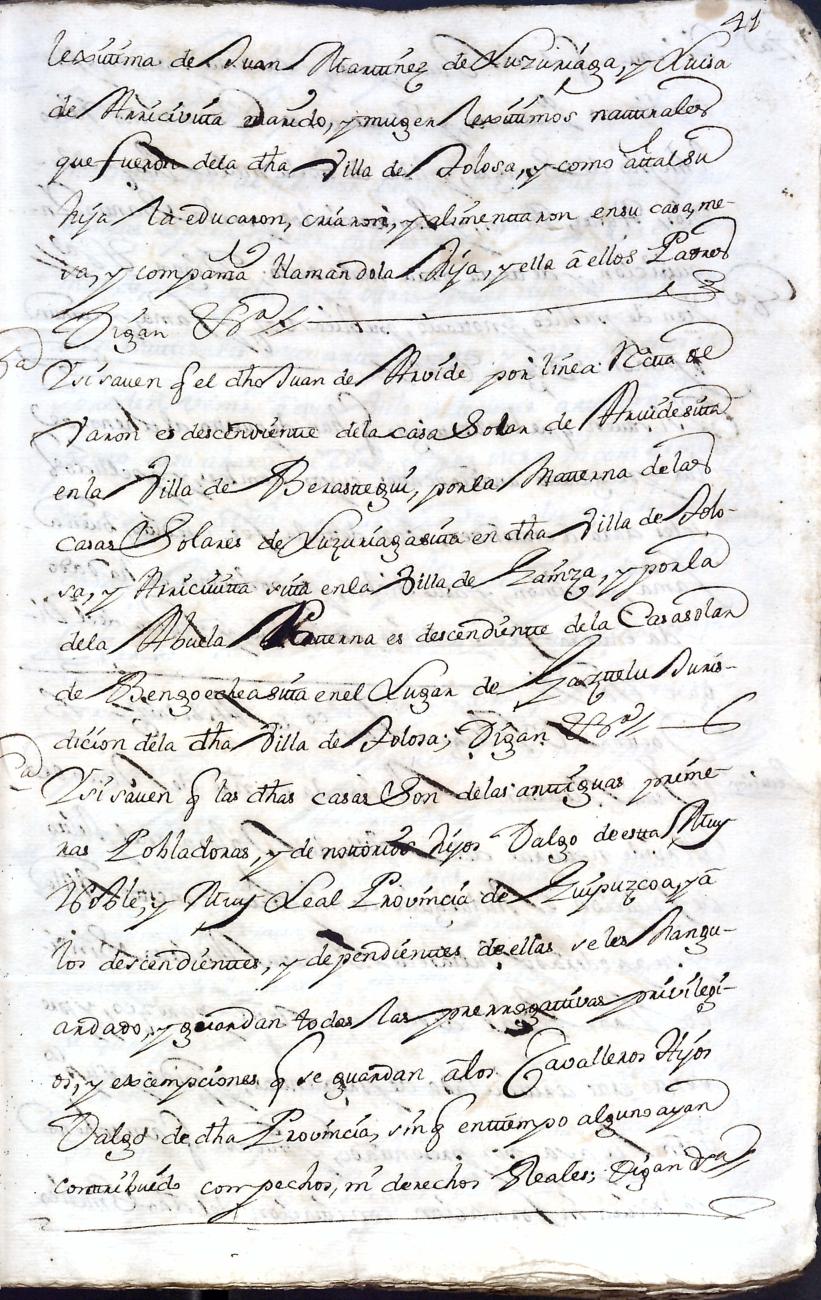 41
lexittima de Juan Martinez de Luzuriaga, y Luisa
de Arriciuita marido, y muger lexittimos natturales
que fueron dela dha Villa de Tolosa, y como attal su
hija la educaron, criaron, y alimenttaron en su casa, me-
sa, y compañia llamandola Hija, y ella a ellos Padres
Digan &ra
5a
Y si saven q el dho Juan de Aruide por linea recta de
varon es descendiente dela casa Solar de Aruide sitta
en la Villa de Berasttegui, por la Matterna de las
casas Solares de Luzuriaga sita en dha Villa de Tolo-
sa, y Arriciuitta sitta en la Villa de Gainza, y por la
dela Abuela Patterna es descendientte de la Casa solar
de Bengoechea sitta en el Lugar de Gaztelu Juris-
dicion dela dha Villa de Tolosa; Digan &ra
6a
Y si saven q las dhas casas Son delas anttiguas prime-
ras Pobladoras, y de nottorios hijos Dalgo de estta Muy
Noble, y Muy Leal Provincia de Guipuzcoa, y a
los descendienttes, y dependienttes de ellas se les han gu-
ardado, y guardan todas las prerrogattivas privilegi-
os, y excempciones q se guardan a los Cavalleros Hijos
Dalgo de dha Provincia, sin q en ttiempo alguno ayan
contribuido con pechos, ni derechos Reales; Digan &ra